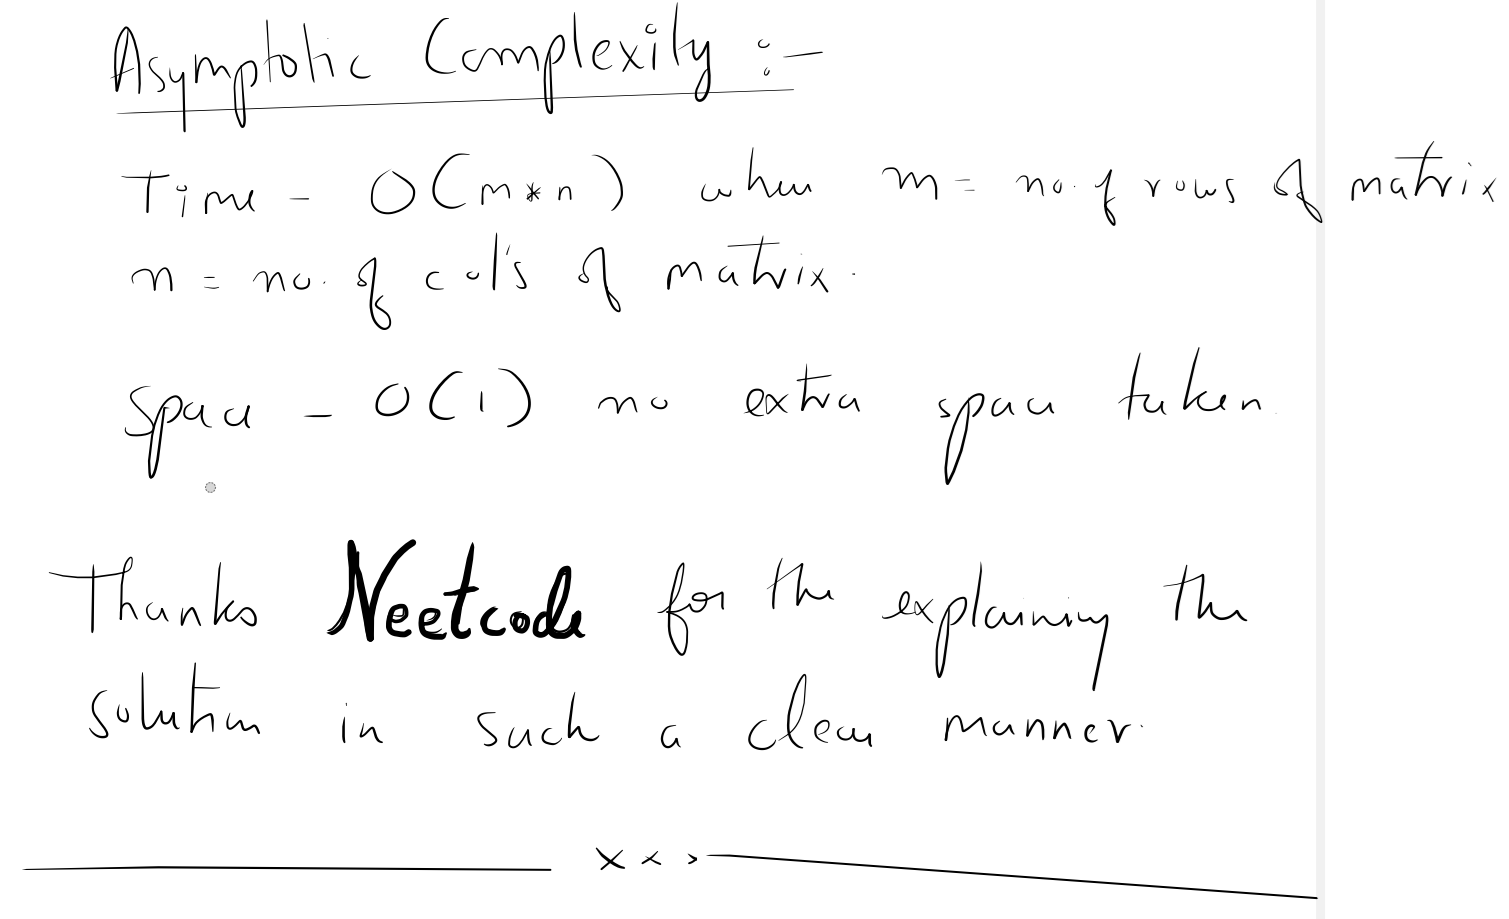 Asymptotic Complexity :-
Time - O(m*n) where m = no. of rows of matrix
n = no. of col's of matrix.
Space - O(1) no extra space taken.
Thanks Neetcode for the explaining the
solution in such a clear manner.
x x >